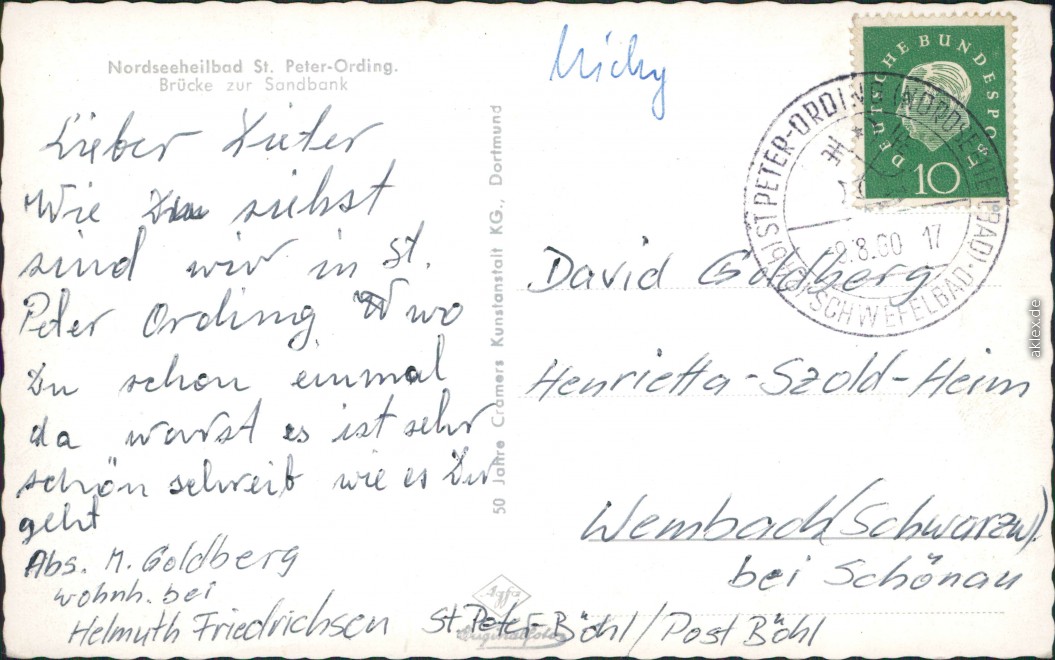 Nordseeheilbad St. Peter-Ording.
Brücke zur Sandbank
Lieber Dieter
Wie Du siehst
sind wir in St.
Peter Ording wo
Du schon einmal
da warst es ist sehr
schön schreib wie es Dir
geht
Abs. M. Goldberg
wohnh. bei
Helmuth Friedrichsen St Peter-Böhl/Post Böhl
50 Jahre Cramers Kunstanstalt KG., Dortmund
Agfa
Originalfoto
Micky
DEUTSCHE BUNDESPOST
10
ST PETER-ORDING (NORDSEEHEILBAD)
SCHWEFELBAD
8.60 17
David Goldberg
Henrietta-Szold-Heim
Wembach (Schwarzw)
bei Schönau
aklex.de